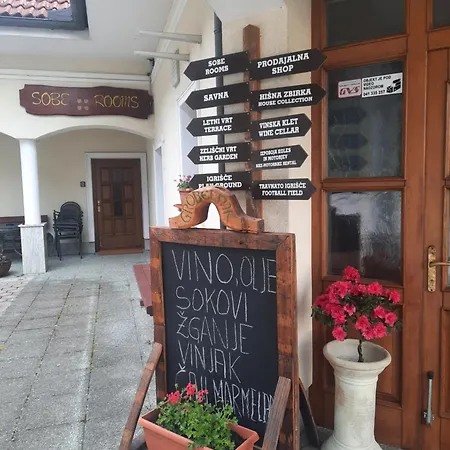 SOBE ROOMS
SOBE
ROOMS
PRODAJALNA
SHOP
SAVNA
HIŠNA ZBIRKA
HOUSE COLLECTION
LETNI VRT
TERRACE
VINSKA KLET
WINE CELLAR
ZELIŠČNI VRT
HERB GARDEN
IZPOSOJA KOLES IN MOTORJEV
IGRIŠČE
PLAYGROUND
TRAVNATO IGRIŠČE
FOOTBALL FIELD
OBJEKT JE POD
VIDEO
NADZOROM
GVS
041 335 257
VINO, OLJE
SOKOVI
ŽGANJE
VINJAK
MARMELA